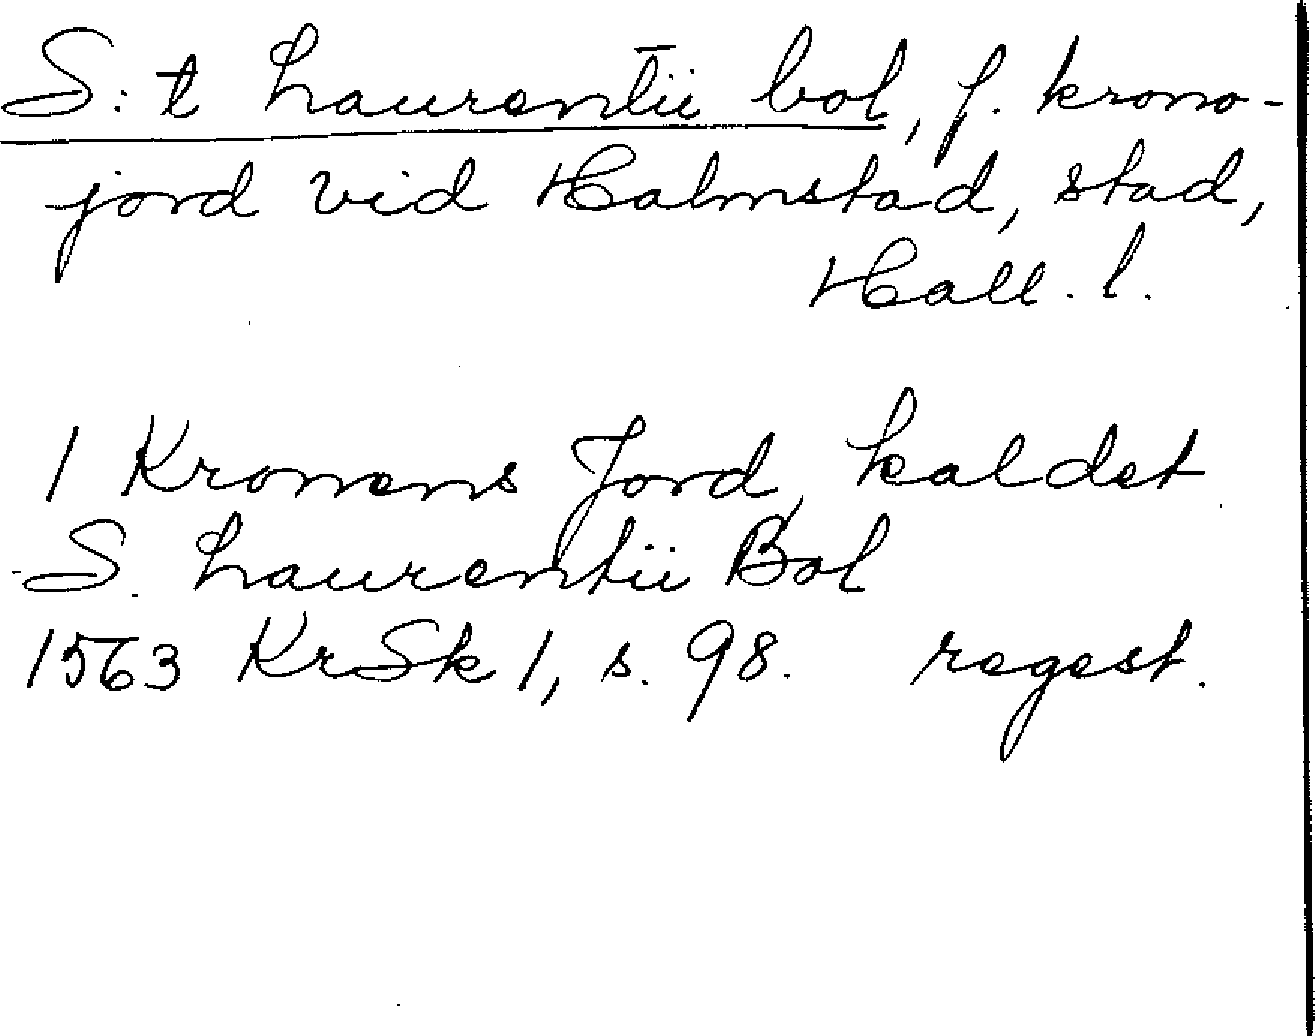 S:t Laurentii bol, f. krono-
jord vid Halmstad, stad,
Hall. l.
1 Kronens Jord, kaldet
S. Laurentii Bol
1563 KrSk 1, s. 98. regest.